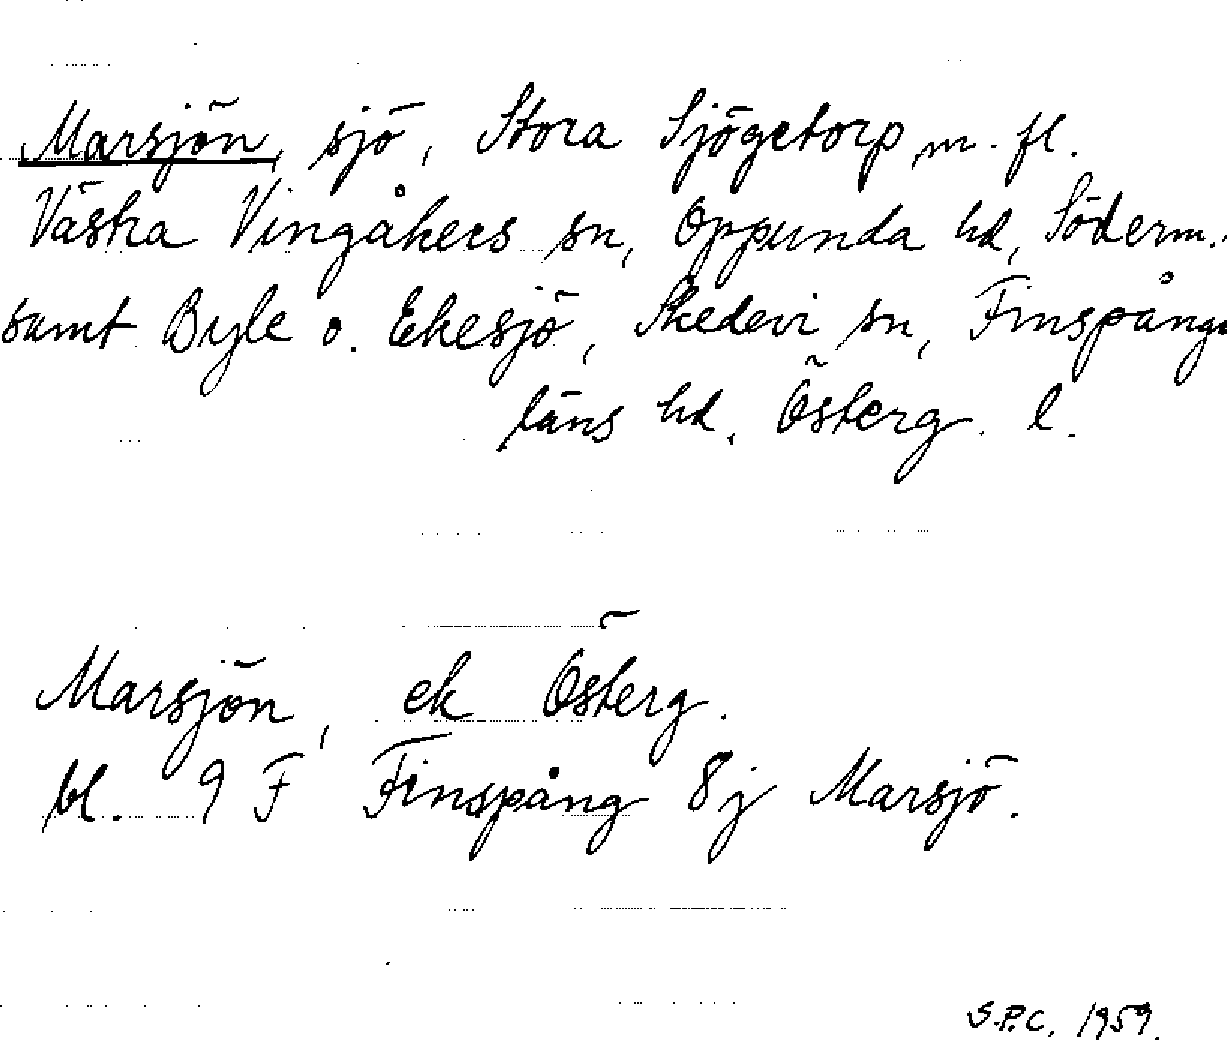 Marsjön, sjö, Stora Sjögetorp m. fl.
Västra Vingåkers sn, Oppunda hd, Söderm.
samt Byle o. Ekesjö, Skedevi sn, Finspånga
läns hd, Österg. l.
Marsjön, ek Österg.
bl. 9 F Finspång 8j Marsjö.
S.P.C. 1959.